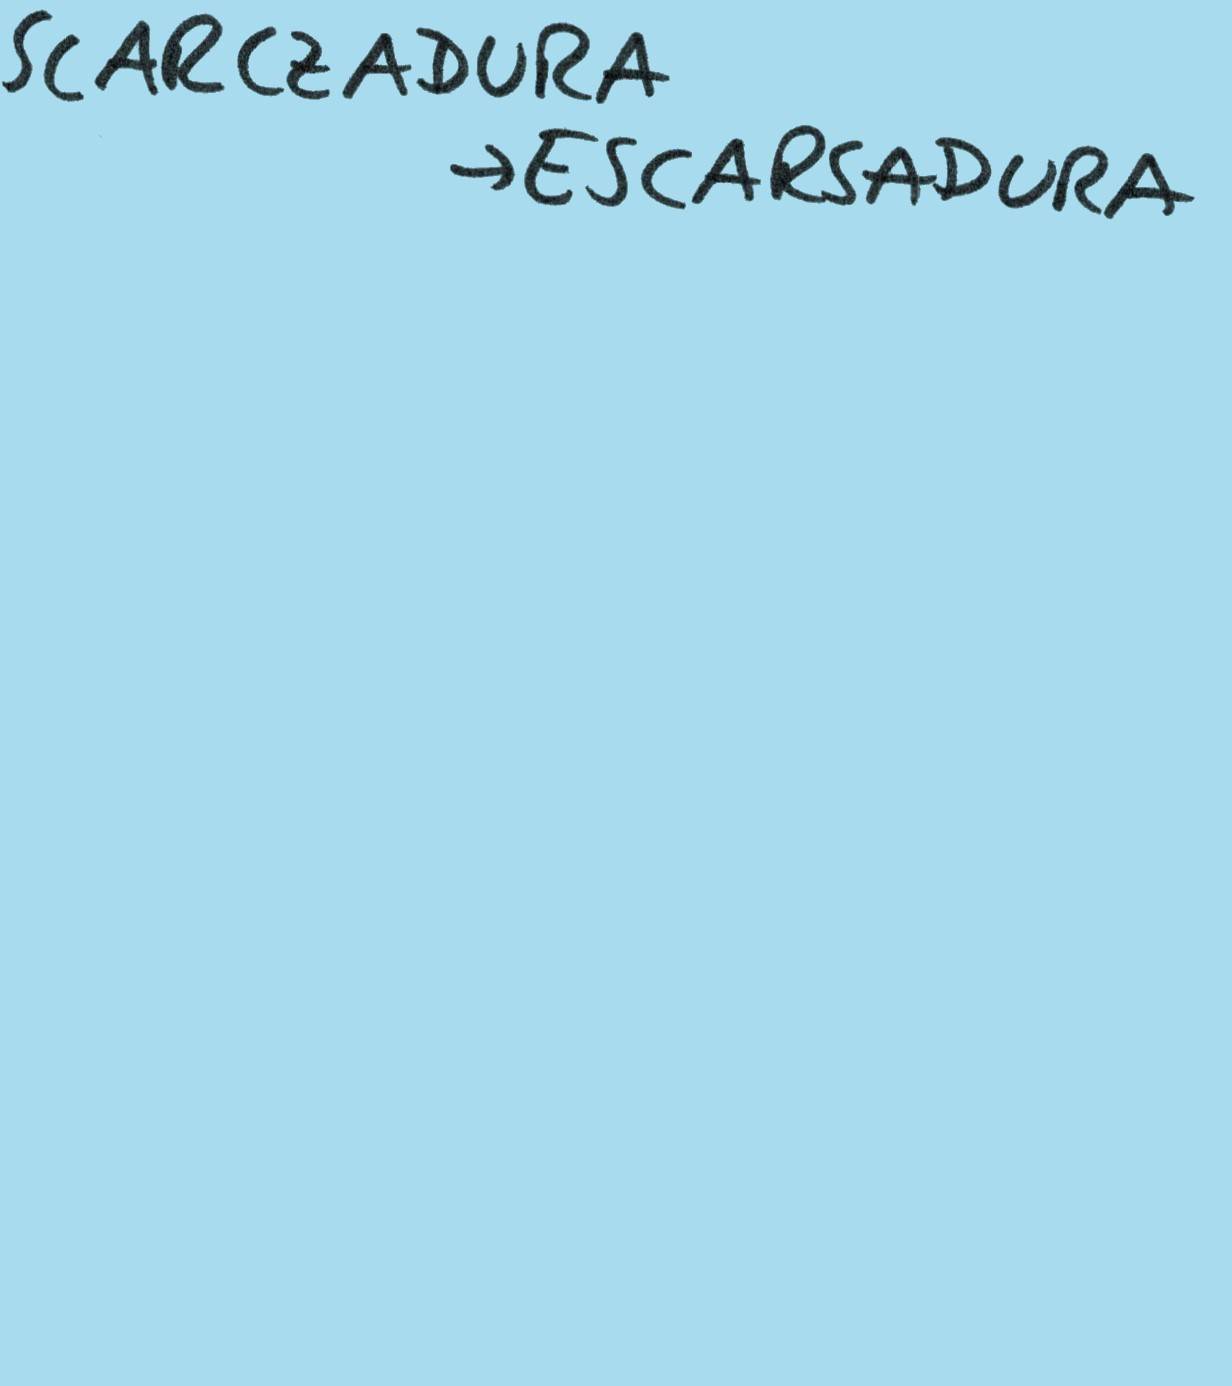 SCARCZADURA
→ESCARSADURA